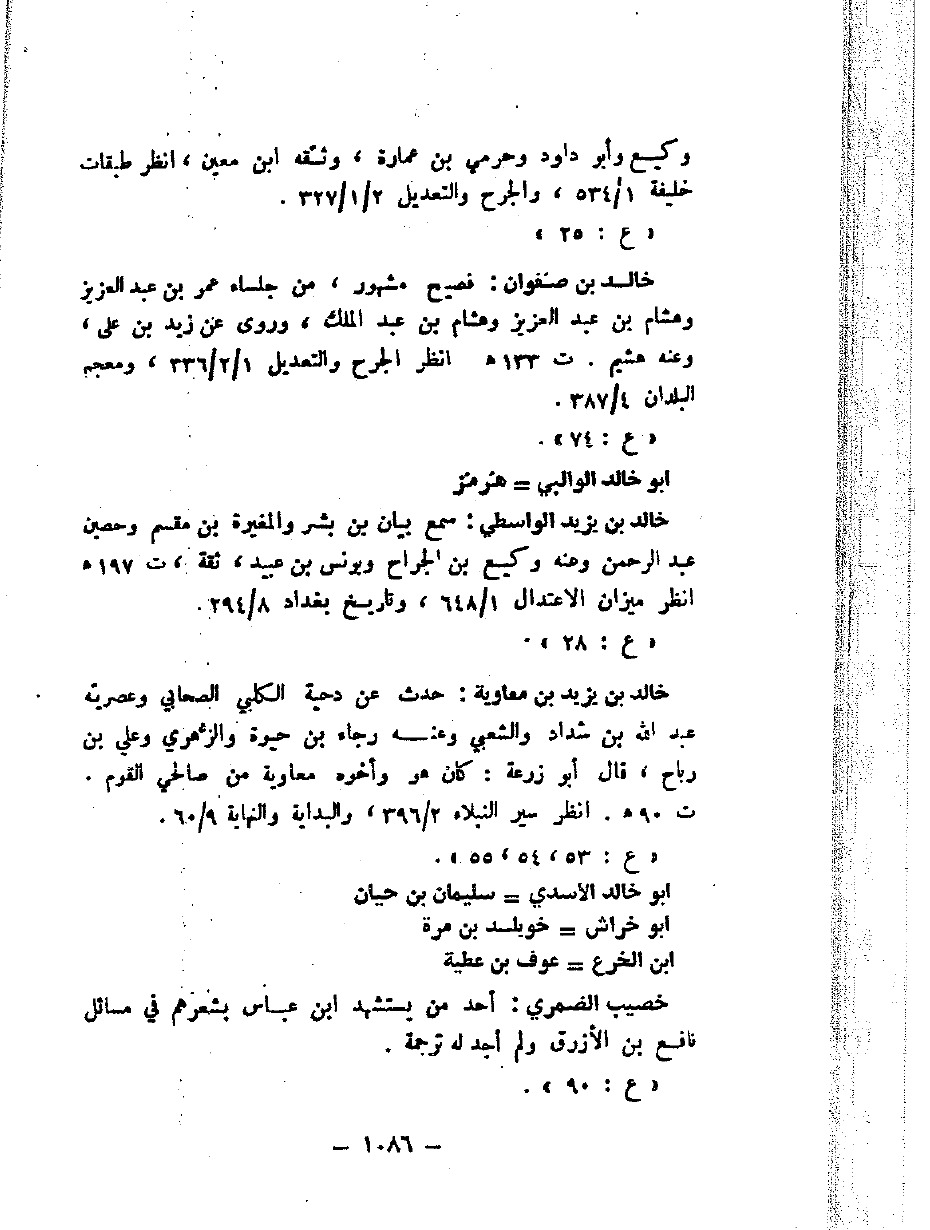 وكيع وأبو داود وحرمي بن عمارة ، وثقه ابن معين ، انظر طبقات
خليفة ٥٣٤/١ ، والجرح والتعديل ٣٢٧/١/٢ .
« ع : ٢٥ »
خالد بن صفوان : فصيح مشهور ، من جلساء عمر بن عبد العزيز
وهشام بن عبد العزيز وهشام بن عبد الملك ، وروى عن زيد بن علي ،
وعنه هشيم . ت ١٣٣ه انظر الجرح والتعديل ٣٣٦/٢/١ ، ومعجم
البلدان ٣٨٧/٤ .
« ع : ٧٤ » .
ابو خالد الوالبي = هرمز
خالد بن يزيد الواسطي : سمع بيان بن بشر والمغيرة بن مقسم وحصين
عبد الرحمن وعنه وكيع بن الجراح ويونس بن عبيد ، ثقة ، ت ١٩٧ه
انظر ميزان الاعتدال ٦٤٨/١ ، وتاريخ بغداد ٢٩٤/٨ .
« ع : ٢٨ » .
خالد بن يزيد بن معاوية : حدث عن دحية الكلبي الصحابي وعصريه
عبد الله بن شداد والشعبي وعنه رجاء بن حيوة والزهري وعلي بن
رباح ، قال أبو زرعة : كان هو وأخوه معاوية من صالحي القوم .
ت ٩٠ه . انظر سير النبلاء ٣٩٦/٢ ، والبداية والنهاية ٦٠/٩ .
« ع : ٥٣ ، ٥٤ ، ٥٥ » .
ابو خالد الأسدي = سليمان بن حيان
ابو خراش = خويلد بن مرة
ابن الخرع = عوف بن عطية
خصيب الضمري : أحد من يستشهد ابن عباس بشعرهم في مسائل
نافع بن الأزرق ولم أجد له ترجمة .
« ع : ٩٠ » .
– ١٠٨٦ –